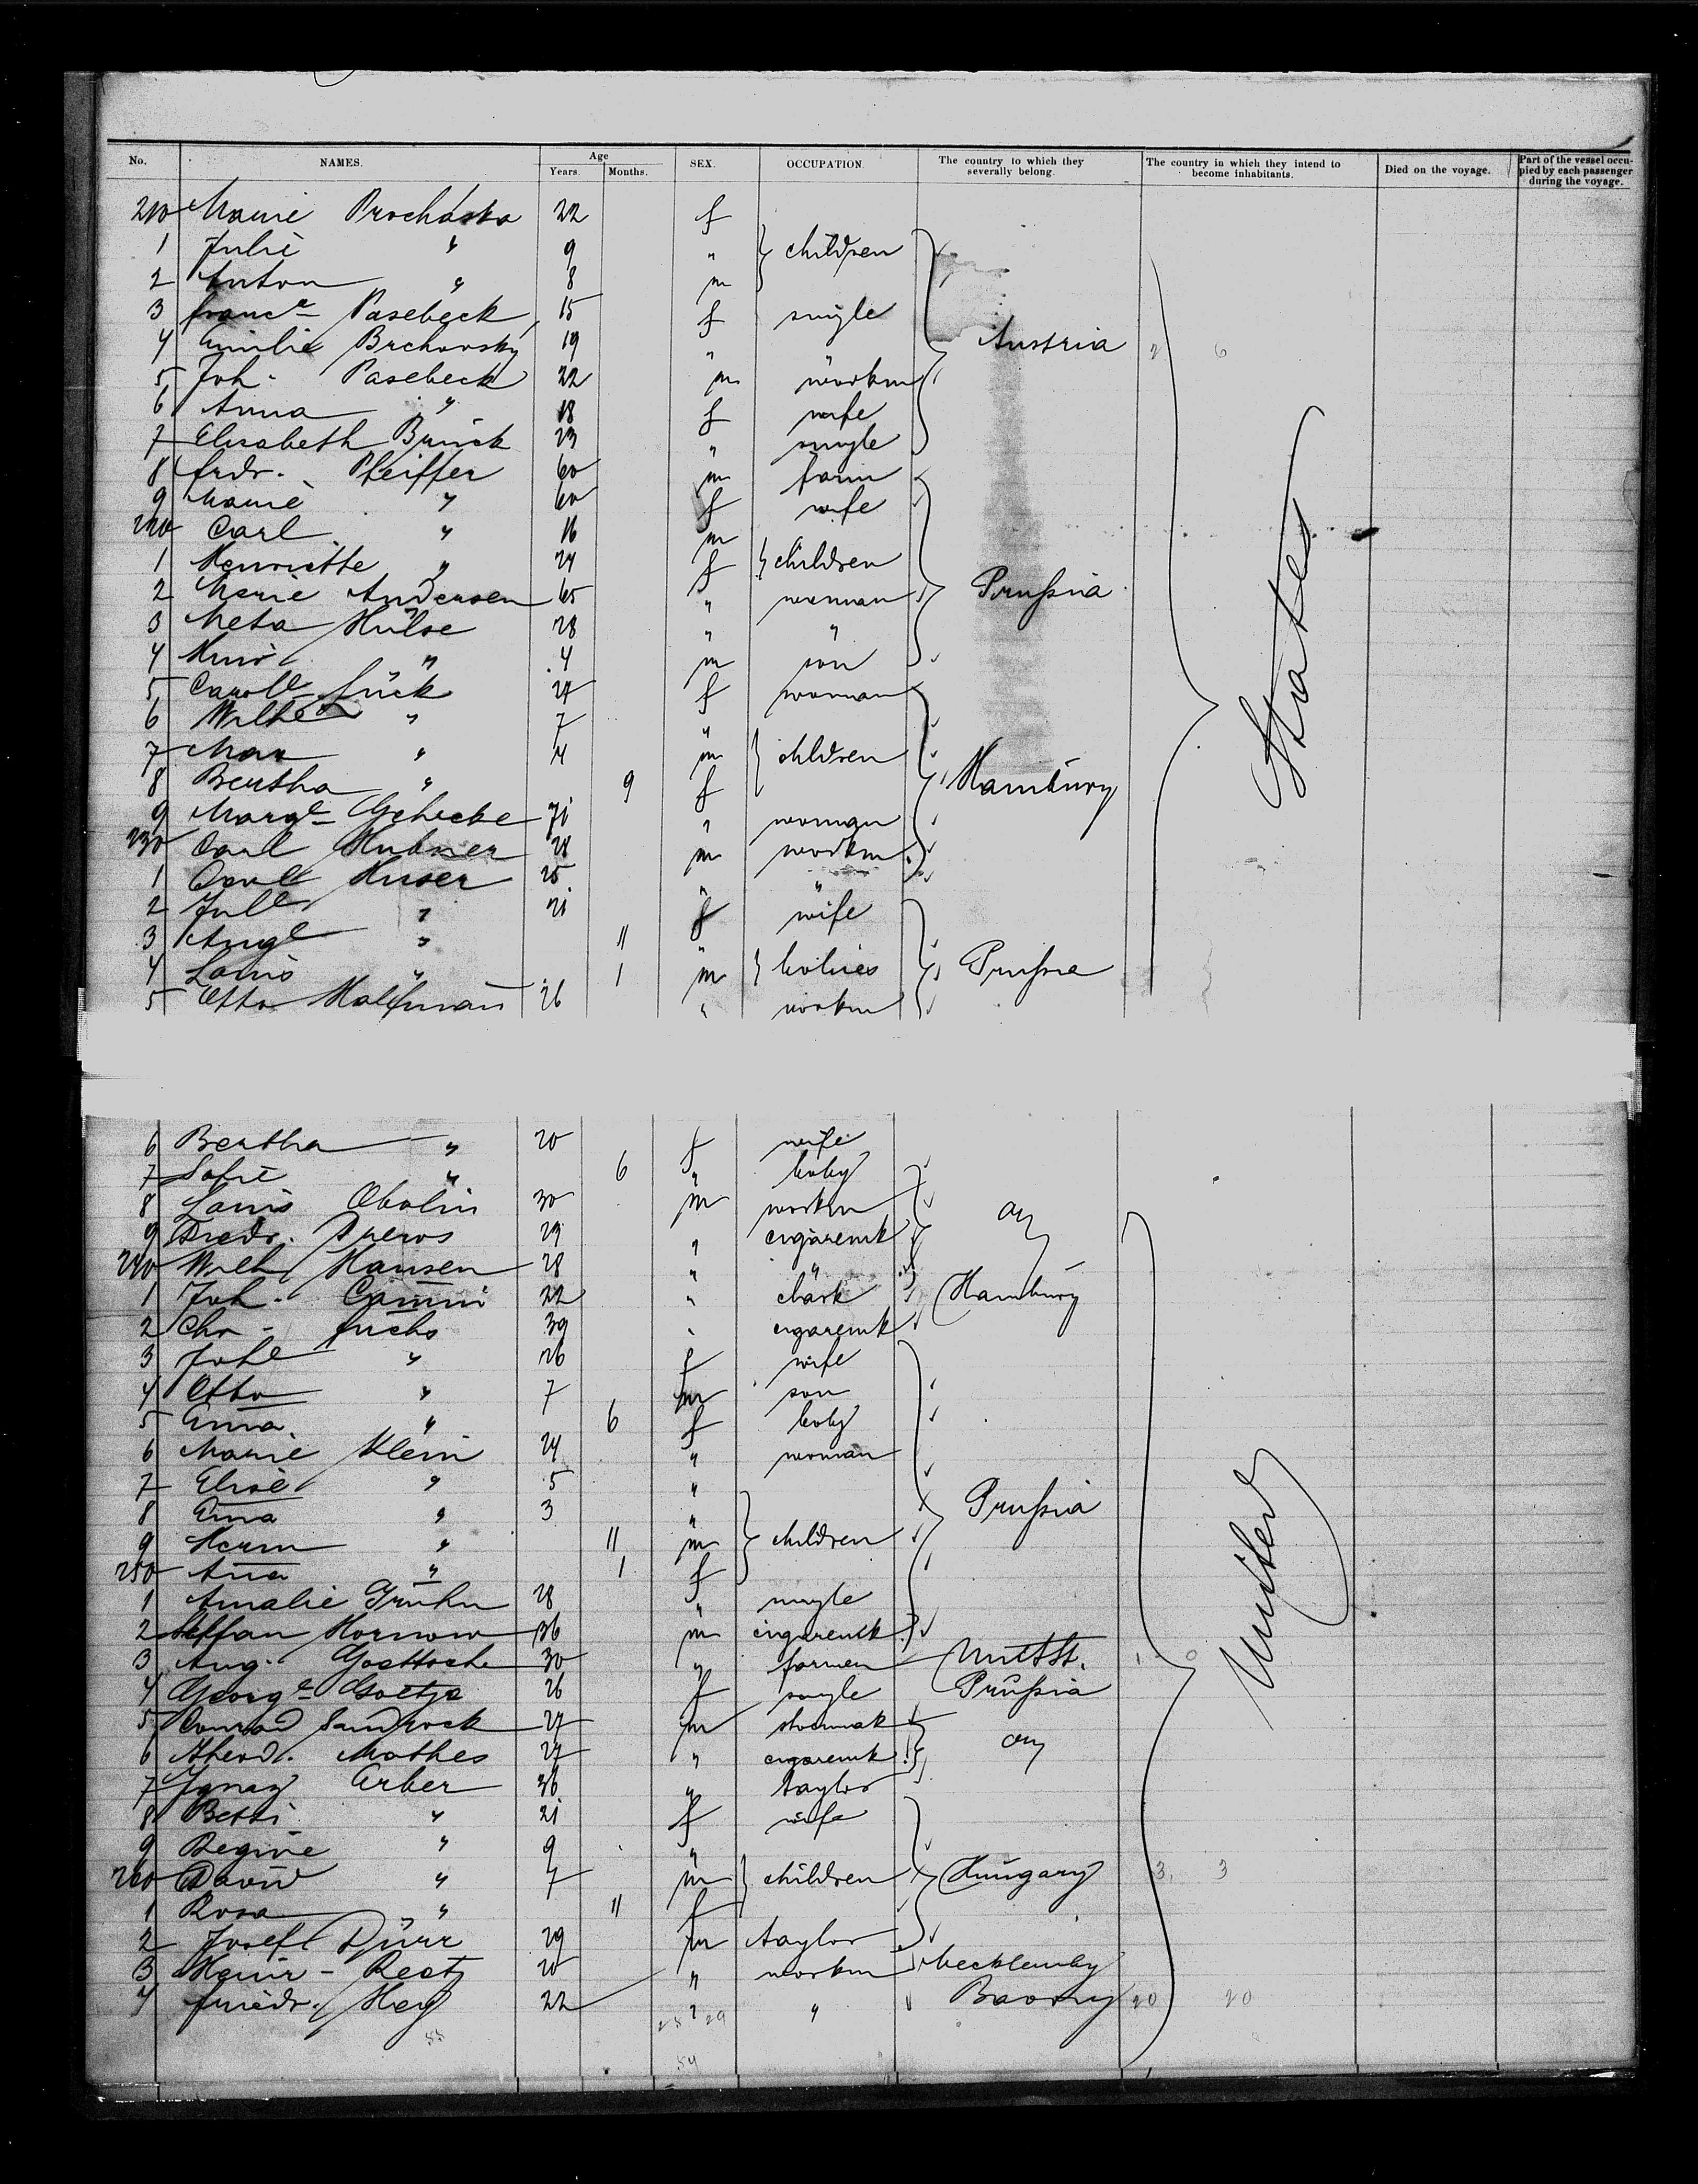 No. NAMES. Age Years. Months. SEX. OCCUPATION. The country to which they severally belong. The country in which they intend to become inhabitants. Died on the voyage. Part of the vessel occupied by each passenger during the voyage.
210 Marie Prochaska 22 f
1 Julie " 9 " } children
2 Anton " 8 m
3 Franca Pasebeck 15 f single
4 Emilie Brchovsky 19 " Austria 2 6
5 Joh. Pasebeck 22 m workm
6 Anna " 18 f wife
7 Elisabeth Brück 23 " single
8 Frdr. Pfeiffer 60 m farm
9 Marie " 60 f wife
220 Carl " 16 m
1 Henriette " 24 f } children
2 Marie Andersen 65 " woman Prussia
3 Meta Hülse 28 " "
4 " 4 m son
5 Caroll Lück 27 f woman
6 Wilhe " 7 "
7 Max " 4 m } children
8 Bertha " 9 f Hamburg
9 Marge 71 " woman
230 Carl Hubner 28 m workm
1 Carl Huser 25 " "
2 Jull " 21 f wife
3 Augl " 11 "
4 Louis " 1 m } babies Prussia
5 Otto 26 " workm
States
6 Bertha " 20 f wife
7 Sofie " 6 " baby
8 Louis Obolin 30 m workm
9 Fredr. 29 " cigaremk
240 Wilh Hansen 28 " "
1 Joh. Camin 22 " clark Hamburg
2 Chr. Fuchs 39 " cigaremk
3 Johe " 26 f wife
4 Otto " 7 m son
5 Ema " 6 f baby
6 Marie Klein 24 " woman
7 Elise " 5 "
8 Ema " 3 " Prussia
9 Herm " 11 m } children
250 Ana " 1 f
1 Amalie Gruhn 28 " single
2 Steffan Hornow 36 m cigaremk
3 Aug. 30 " farmer Unit St. 1 0
4 George Goetje 26 f single Prussia
5 Conrad Sandrock 27 m shoemak
6 Theod. Mathes 27 " cigaremk
7 Ignaz Erber 36 " taylor
8 Betti " 21 f wife
9 Regine " 9 "
260 David " 7 m } children Hungary 3 3
1 Rosa " 11 f
2 Josef Dürr 29 m taylor
3 Heinr. Reetz 20 " workm Mecklenbg
4 Friedr. Hey 22 " " 20 20
United
54